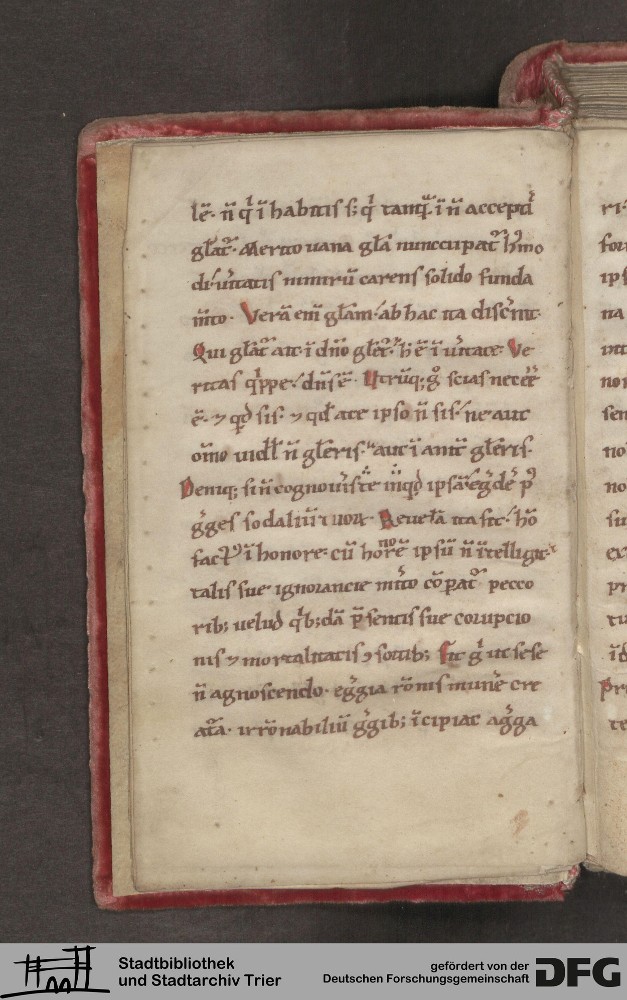 lē· n̄ qͥ ī habitis s; qͥ tanqͣ ī n̄ acceptͥ
gl̄at᷑· Merito uana gl̄a nunccupat᷑ hͦmo
di· uͥtatis nimirū carens solido funda
m̄to· Verā enī gl̄am· ab hac ita discͥnit·
Qui gl̄at᷑ ait· ī dn̄o gl̄et᷑· h̄ ē ī uͥtate· Ve
ritas qͥppe· dn̄s ē· Utrūq; gͦ scias necēē
ē· ⁊ qͥd sis· ⁊ qd̄ a te ipso n̄ sis· ne aut
om̄o uidl̄ n̄ gl̄eris· aut ī anit᷑ gl̄eris·
Deniq; si n̄ cognouͥis te inqͥd ipsā egͥdē pꝰ
gͥges sodaliū tuoꝝ· Reuerā ita fit· hō
factꝰ ī honore· cū honorē ipsū n̄ ītelligit·
talis sue ignorancie mͥito cōpat᷑ pecco
rib; uelud qͥb;dā p̄sentis sue corupcio
nis ⁊ mortalitatis ⁊ sotiib; Fit gͥ ut sese
n̄ agnoscendo· egͥgia rōnis munͥe cre
atͣa· irrōnabiliū gͥgib; īcipiat agͥga
Stadtbibliothek
und Stadtarchiv Trier
gefördert von der
Deutschen Forschungsgemeinschaft
DFG